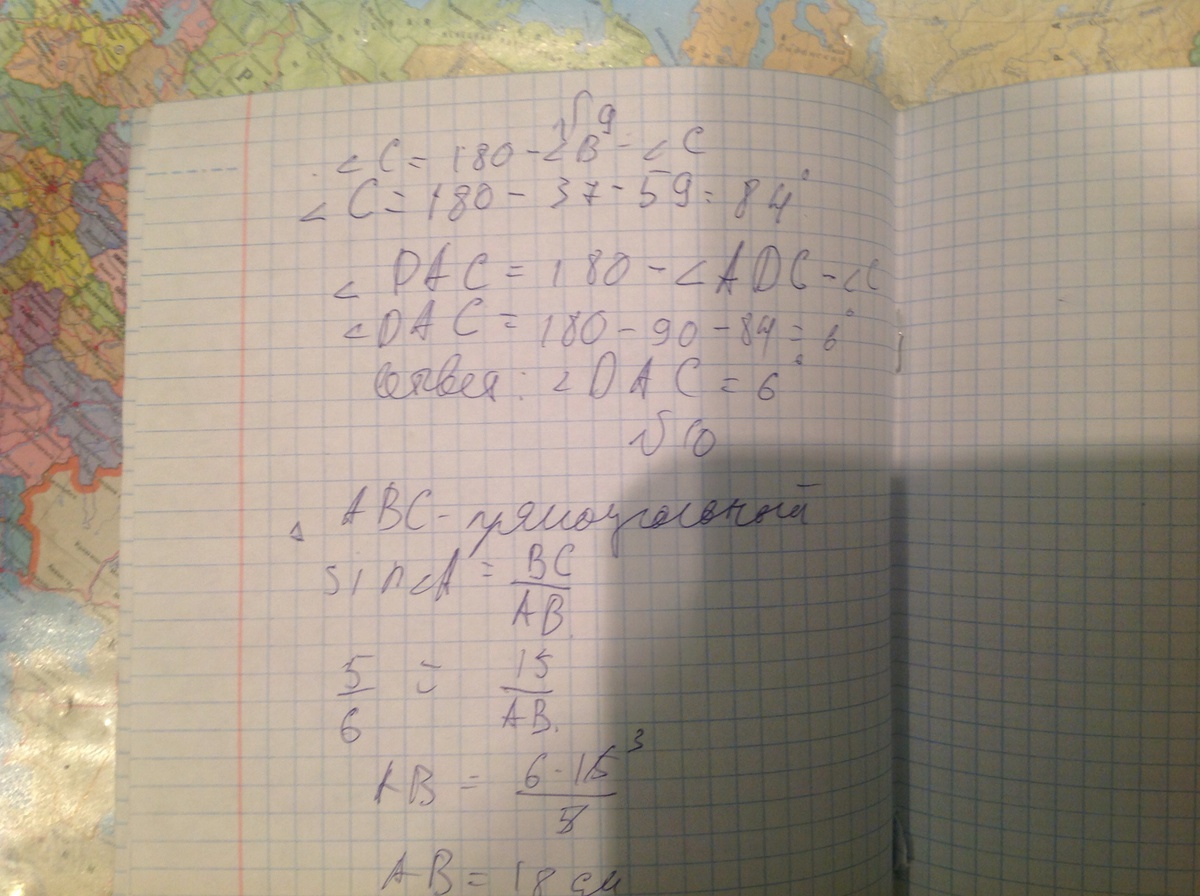 № 9
∠C = 180 - ∠B - ∠C
∠C = 180 - 37 - 59 = 84°
∠DAC = 180 - ∠ADC - ∠C
∠DAC = 180 - 90 - 84 = 6°
Ответ: ∠DAC = 6°
№ 10
△ ABC - прямоугольный
sin∠A = BC/AB
5/6 = 15/AB
AB = 6·15³/5
AB = 18 см